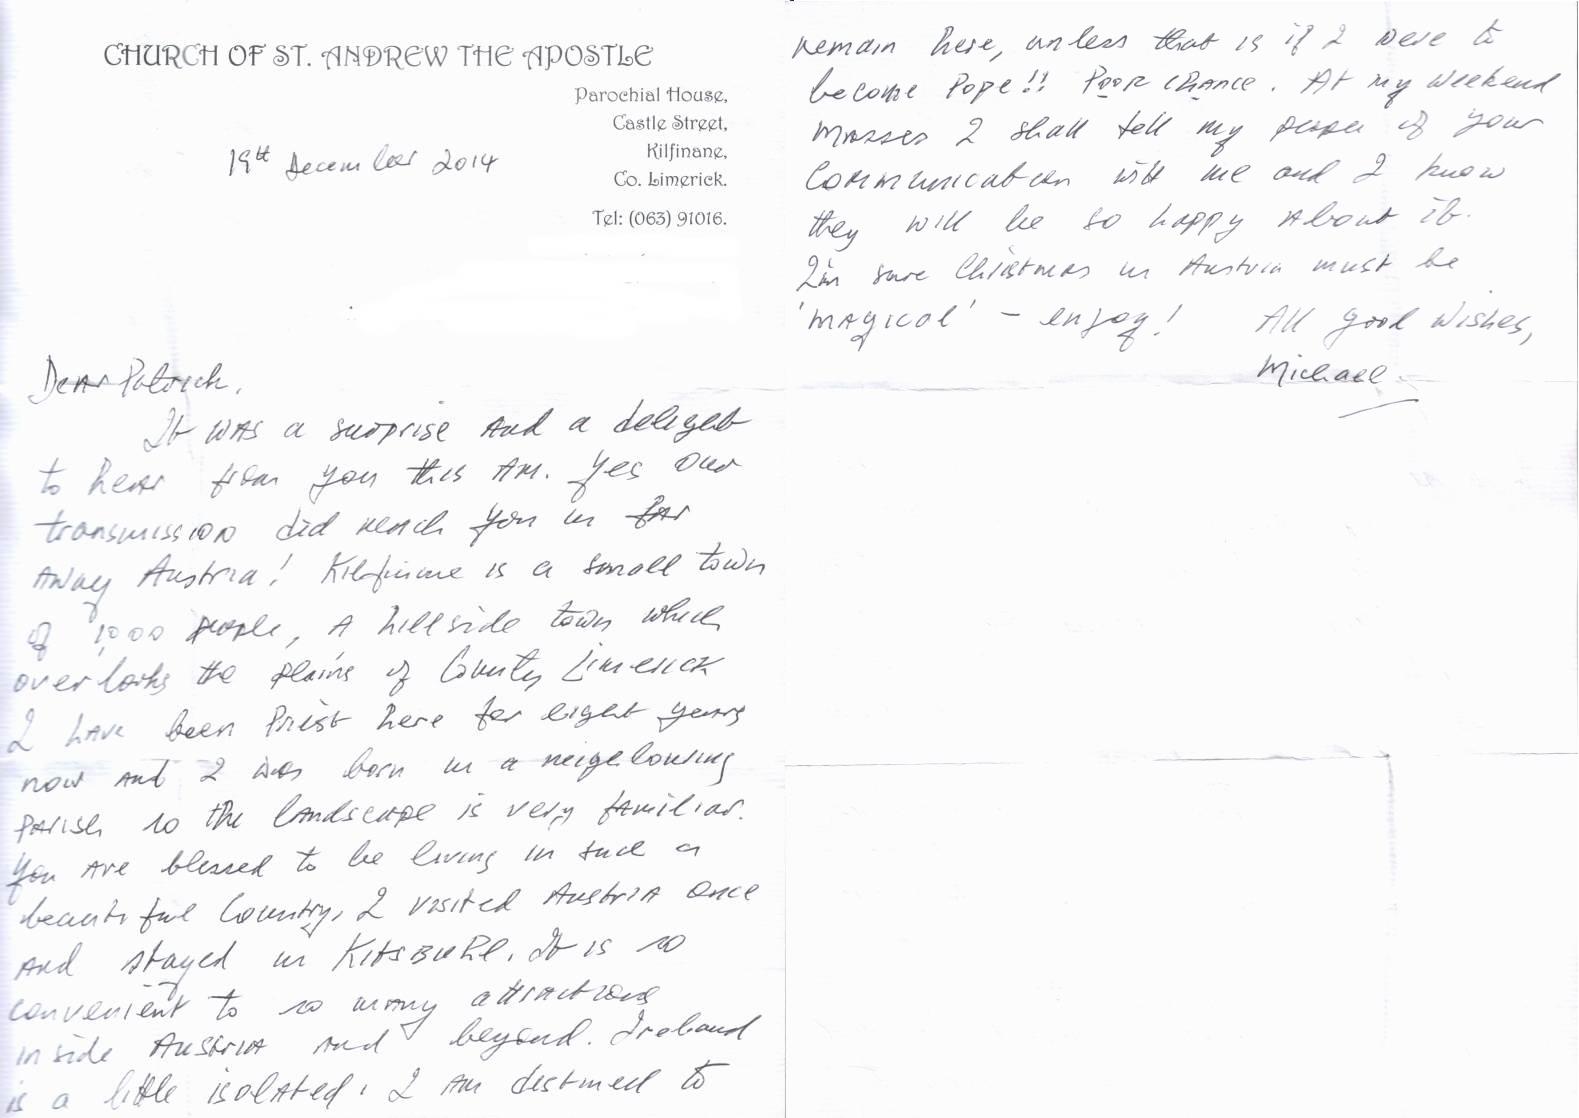 CHURCH OF ST. ANDREW THE APOSTLE
Parochial House,
Castle Street,
Kilfinane,
Co. Limerick.
Tel: (063) 91016.
19th December 2014
Dear Patrick.
It was a surprise and a delight
to hear from you this AM. Yes our
transmission did reach you in far
away Austria! Kilfinane is a small town
of 1,000 people, A hillside town which
overlooks the plains of County Limerick
I have been Priest here for eight years
now and I was born in a neighbouring
parish so the landscape is very familiar.
You are blessed to be living in such a
beautiful Country. I visited Austria once
and stayed in Kitsbuhl. It is so
convenient to so many attractions
inside Austria and beyond. Ireland
is a little isolated. I am destined to
remain here, unless that is if I were to
become Pope!! Poor chance. At my weekend
masses I shall tell my people of your
communication with me and I know
they will be so happy about it.
I'm sure Christmas in Austria must be
'magical' - enjoy! All good wishes,
Michael